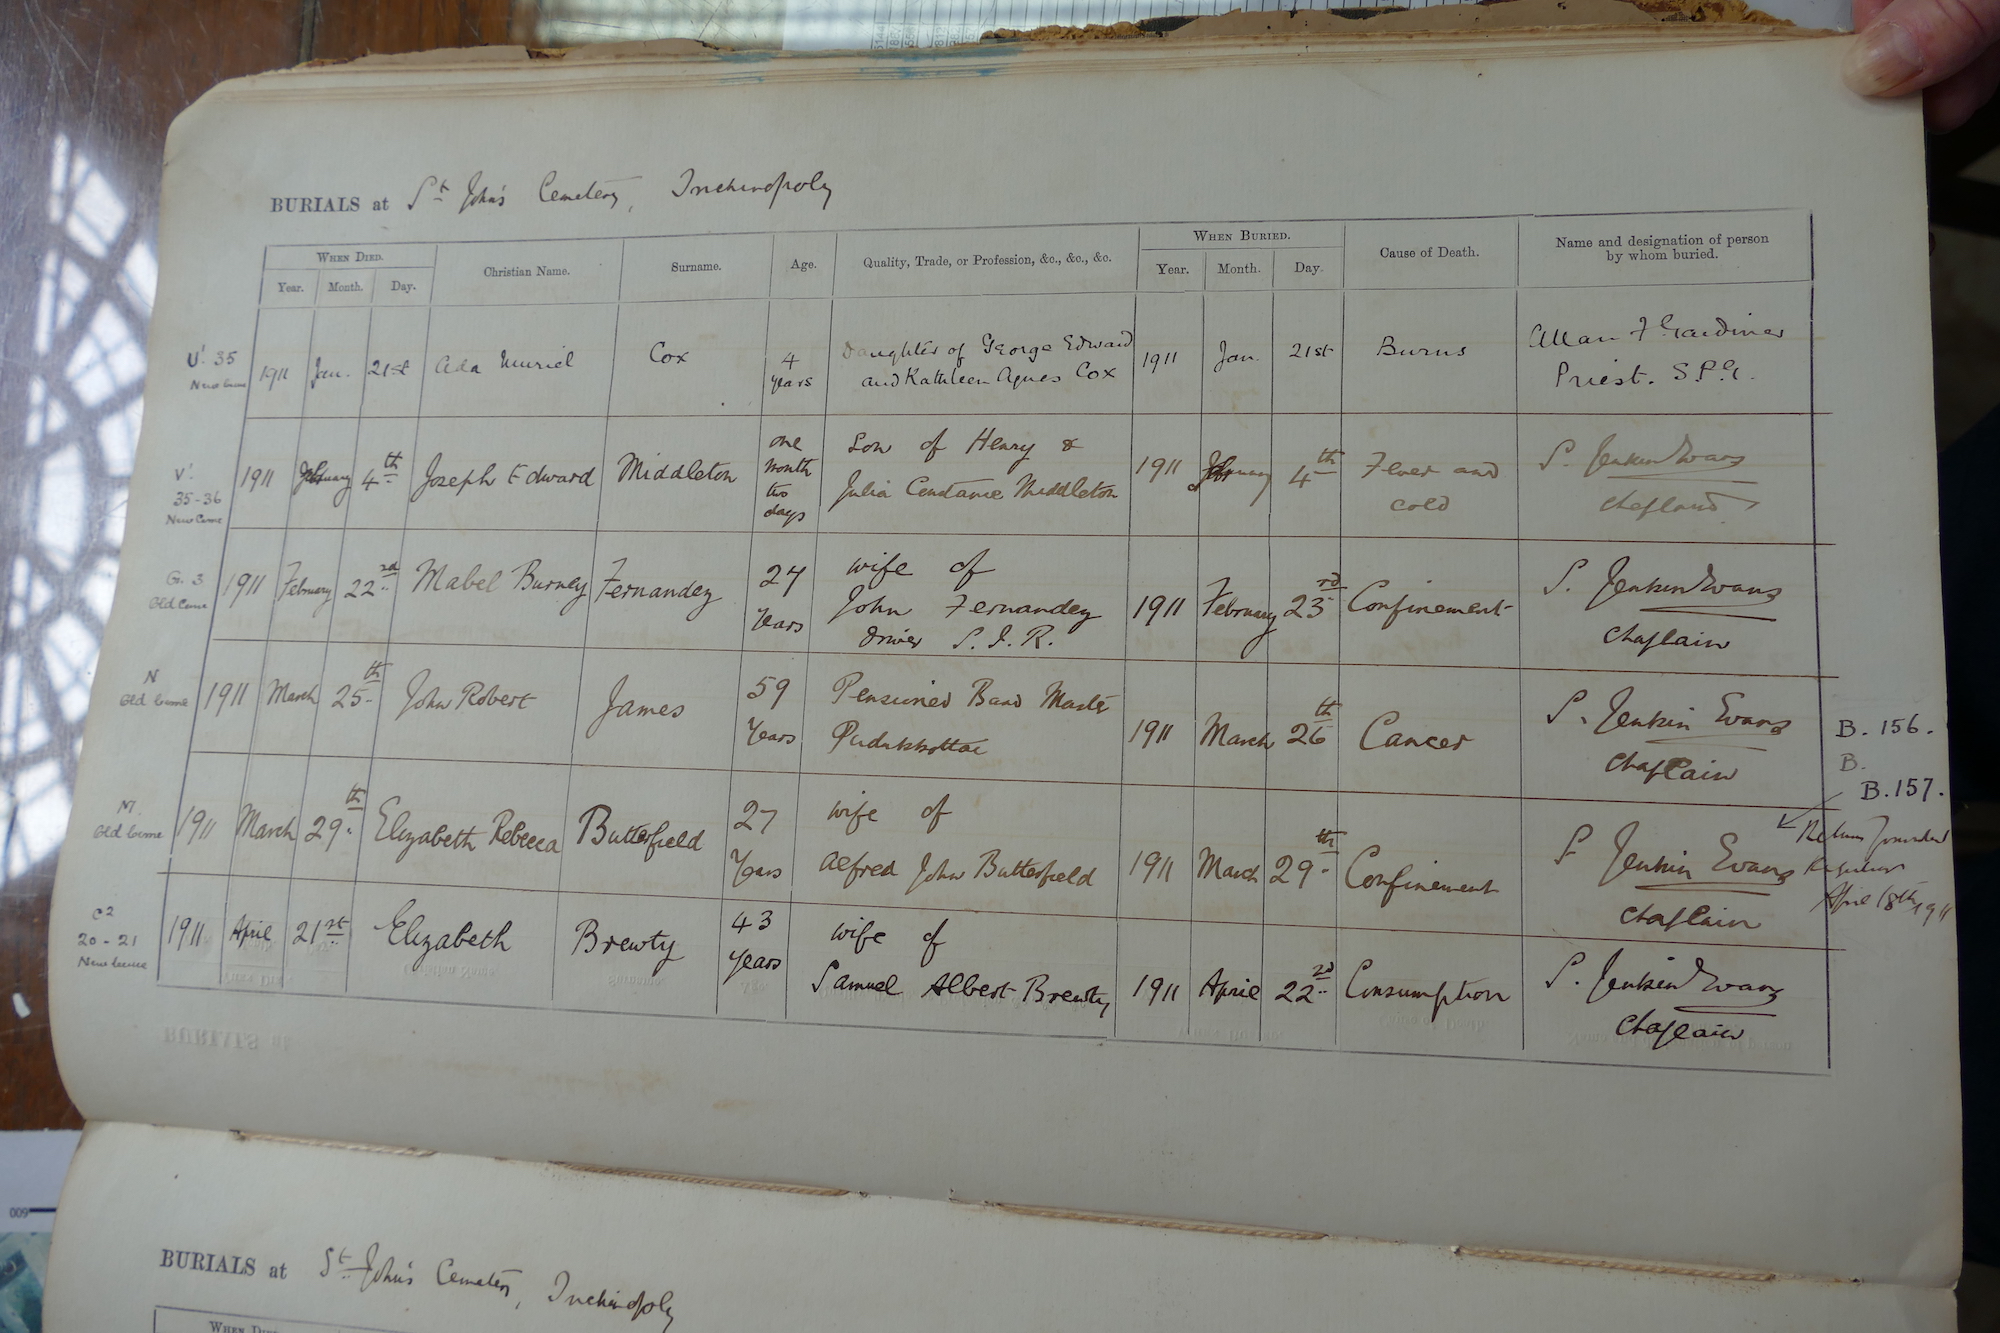 BURIALS at St John's Cemetery, Trichinopoly
When Died. Christian Name. Surname. Age. Quality, Trade, or Profession, &c., &c., &c. When Buried. Cause of Death. Name and designation of person by whom buried.
Year. Month. Day. Year. Month. Day.
U'. 35
New Ceme
1911 Jan. 21st Ada Muriel Cox 4 years Daughter of George Edward and Kathleen Agnes Cox 1911 Jan. 21st Burns Allan F Gardiner Priest. S.P.G.
V'.
35-36
New Ceme
1911 February 4th Joseph Edward Middleton one month two days Son of Henry & Julia Constance Middleton 1911 February 4th Fever and cold S. Jenkin Evans Chaplain
G. 3
Old Ceme
1911 February 22nd Mabel Burney Fernandez 27 Years wife of John Fernandez driver S.I.R. 1911 February 23rd Confinement S. Jenkin Evans Chaplain
N
Old Ceme
1911 March 25th John Robert James 59 Years Pensioned Band Master Pudukkottai 1911 March 26th Cancer S. Jenkin Evans Chaplain
B. 156.
B.
B. 157.
M.
Old Ceme
1911 March 29th Elizabeth Rebecca Butterfield 27 Years wife of Alfred John Butterfield 1911 March 29th Confinement S Jenkin Evans Chaplain
April 18th 1911
C2
20-21
New Ceme
1911 April 21st Elizabeth Brewty 43 Years wife of Samuel Albert Brewty 1911 April 22nd Consumption S. Jenkin Evans Chaplain
BURIALS at St John's Cemetery, Trichinopoly
When Died
009